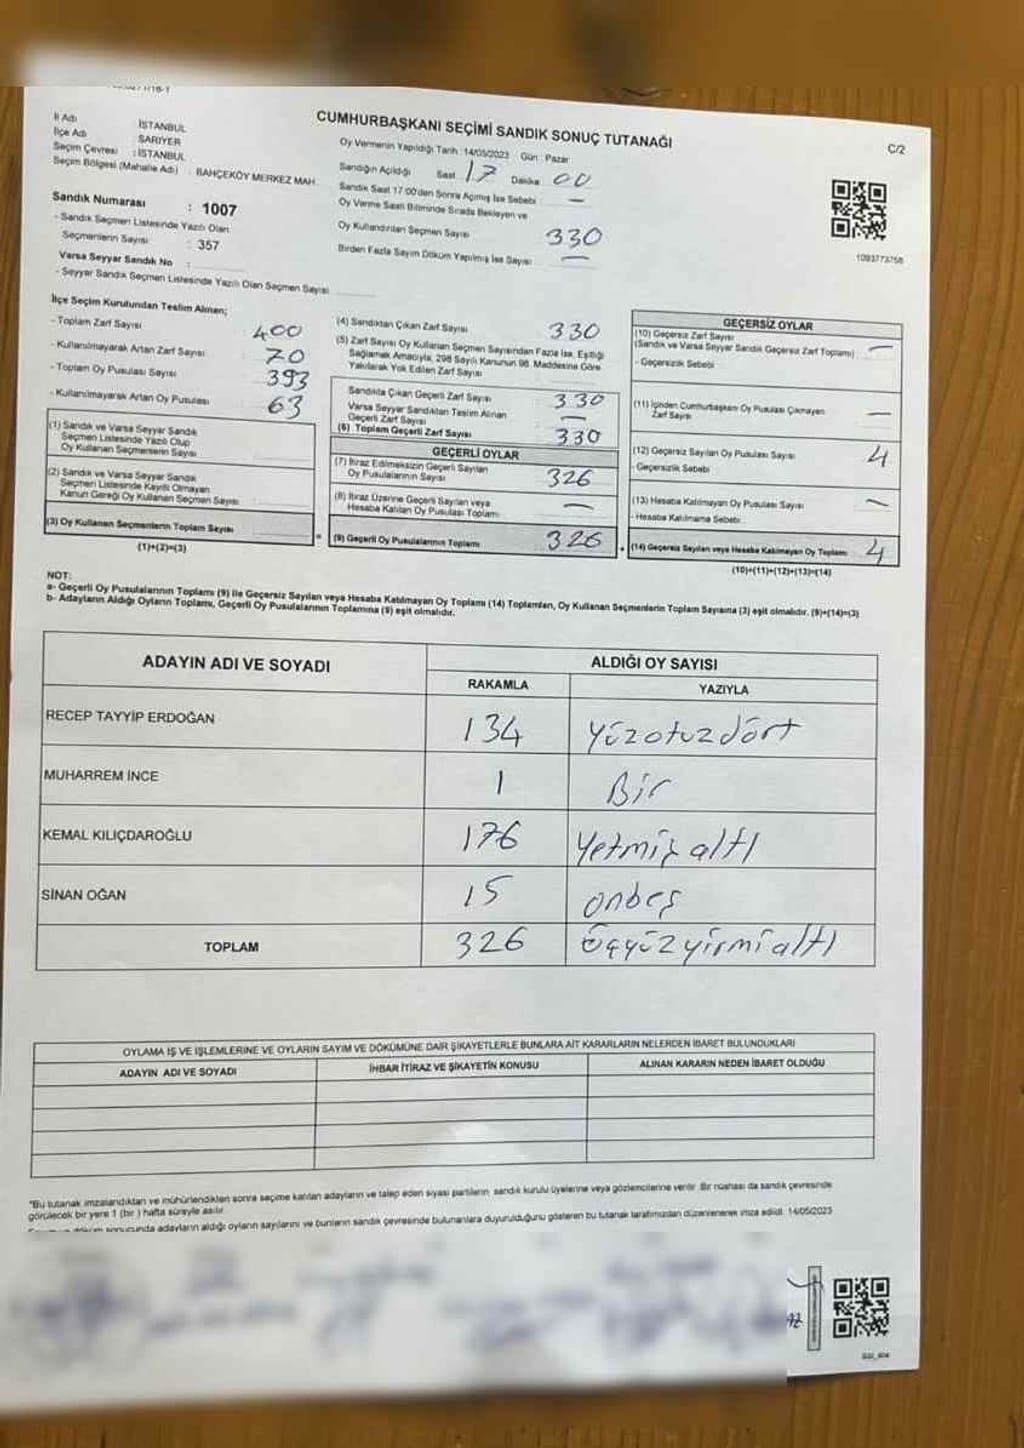 CUMHURBAŞKANI SEÇİMİ SANDIK SONUÇ TUTANAĞI
C/2
İl Adı : İSTANBUL
İlçe Adı : SARIYER
Seçim Çevresi : İSTANBUL
Seçim Bölgesi (Mahalle Adı) : BAHÇEKÖY MERKEZ MAH.
Sandık Numarası : 1007
- Sandık Seçmen Listesinde Yazılı Olan
Seçmenlerin Sayısı : 357
Varsa Seyyar Sandık No :
- Seyyar Sandık Seçmen Listesinde Yazılı Olan Seçmen Sayısı
Oy Vermenin Yapıldığı Tarih : 14/05/2023 Gün : Pazar
Sandığın Açıldığı Saat 17 Dakika 00
Sandık Saat 17:00'den Sonra Açılmış İse Sebebi —
Oy Verme Saati Bitiminde Sırada Bekleyen ve
Oy Kullandırılan Seçmen Sayısı 330
Birden Fazla Sayım Döküm Yapılmış İse Sayısı —
1093773758
İlçe Seçim Kurulundan Teslim Alınan;
- Toplam Zarf Sayısı 400
- Kullanılmayarak Artan Zarf Sayısı 70
- Toplam Oy Pusulası Sayısı 393
- Kullanılmayarak Artan Oy Pusulası 63
(1) Sandık ve Varsa Seyyar Sandık
Seçmen Listesinde Yazılı Olup
Oy Kullanan Seçmenlerin Sayısı
(2) Sandık ve Varsa Seyyar Sandık
Seçmen Listesinde Kayıtlı Olmayan
Kanun Gereği Oy Kullanan Seçmen Sayısı
(3) Oy Kullanan Seçmenlerin Toplam Sayısı
(1)+(2)=(3)
(4) Sandıktan Çıkan Zarf Sayısı 330
(5) Zarf Sayısı Oy Kullanan Seçmen Sayısından Fazla İse, Eşitliği
Sağlamak Amacıyla, 298 Sayılı Kanunun 98. Maddesine Göre
Yakılarak Yok Edilen Zarf Sayısı
Sandıkta Çıkan Geçerli Zarf Sayısı 330
Varsa Seyyar Sandıktan Teslim Alınan
Geçerli Zarf Sayısı —
(6) Toplam Geçerli Zarf Sayısı 330
GEÇERLİ OYLAR
(7) İtiraz Edilmeksizin Geçerli Sayılan
Oy Pusulalarının Sayısı 326
(8) İtiraz Üzerine Geçerli Sayılan veya
Hesaba Katılan Oy Pusulası Toplamı —
(9) Geçerli Oy Pusulalarının Toplamı 326
GEÇERSİZ OYLAR
(10) Geçersiz Zarf Sayısı
(Sandık ve Varsa Seyyar Sandık Geçersiz Zarf Toplamı) —
- Geçersizlik Sebebi
(11) İçinden Cumhurbaşkanı Oy Pusulası Çıkmayan
Zarf Sayısı —
(12) Geçersiz Sayılan Oy Pusulası Sayısı 4
- Geçersizlik Sebebi
(13) Hesaba Katılmayan Oy Pusulası Sayısı —
- Hesaba Katılmama Sebebi
(14) Geçersiz Sayılan veya Hesaba Katılmayan Oy Toplamı 4
(10)+(11)+(12)+(13)=(14)
NOT:
a- Geçerli Oy Pusulalarının Toplamı (9) ile Geçersiz Sayılan veya Hesaba Katılmayan Oy Toplamı (14) Toplamları, Oy Kullanan Seçmenlerin Toplam Sayısına (3) eşit olmalıdır. (9)+(14)=(3)
b- Adayların Aldığı Oyların Toplamı, Geçerli Oy Pusulalarının Toplamına (9) eşit olmalıdır.
ADAYIN ADI VE SOYADI ALDIĞI OY SAYISI
RAKAMLA YAZIYLA
RECEP TAYYİP ERDOĞAN 134 Yüzotuzdört
MUHARREM İNCE 1 Bir
KEMAL KILIÇDAROĞLU 176 Yetmiş altı
SİNAN OĞAN 15 onbeş
TOPLAM 326 Üçyüzyirmialtı
OYLAMA İŞ VE İŞLEMLERİNE VE OYLARIN SAYIM VE DÖKÜMÜNE DAİR ŞİKAYETLERLE BUNLARA AİT KARARLARIN NELERDEN İBARET BULUNDUKLARI
ADAYIN ADI VE SOYADI İHBAR İTİRAZ VE ŞİKAYETİN KONUSU ALINAN KARARIN NEDEN İBARET OLDUĞU
"Bu tutanak imzalandıktan ve mühürlendikten sonra seçime katılan adayların ve talep eden siyasi partilerin sandık kurulu üyelerine veya gözlemcilerine verilir. Bir nüshası da sandık çevresinde
görülecek bir yere 1 (bir) hafta süreyle asılır.
sonucunda adayların aldığı oyların sayılarını ve bunların sandık çevresinde bulunanlara duyurulduğunu gösteren bu tutanak tarafımızdan düzenlenerek imza edildi. 14/05/2023